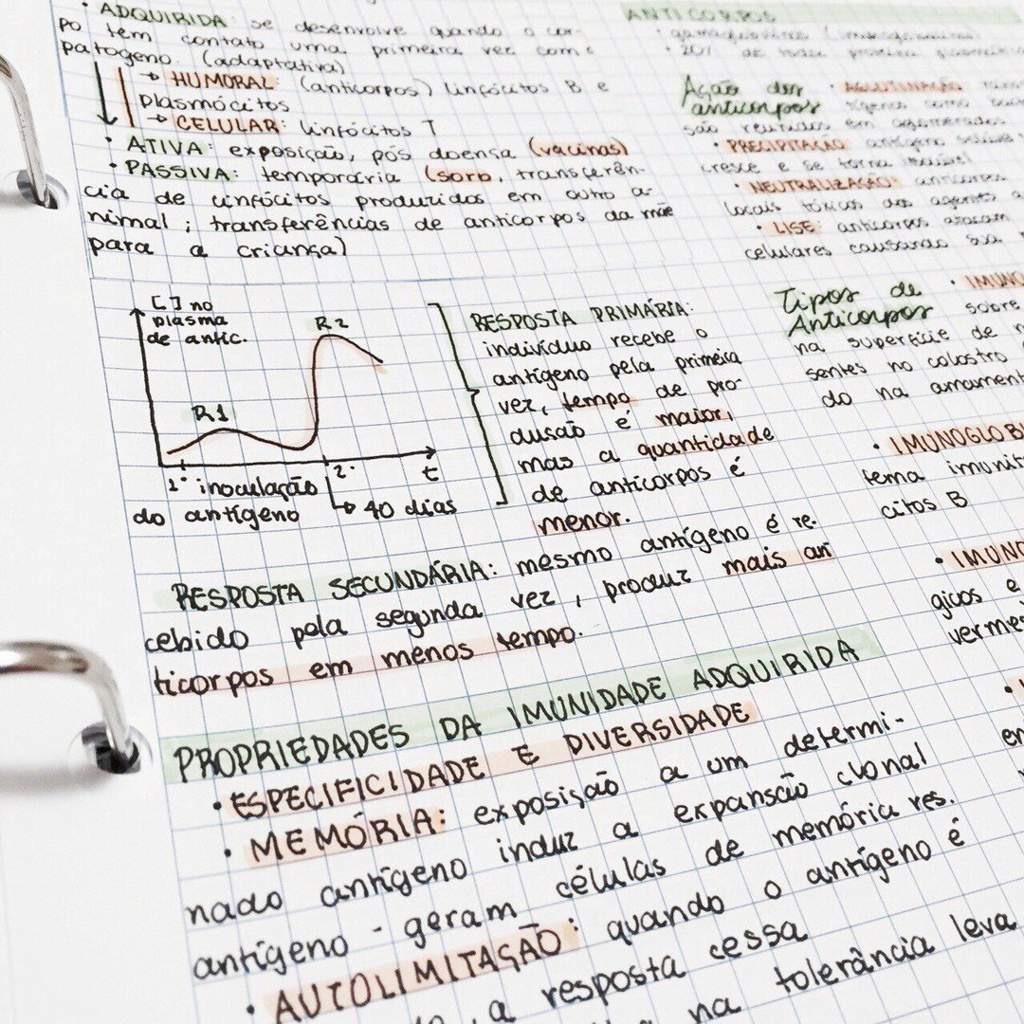 • ADQUIRIDA: se desenvolve quando o cor-
po tem contato uma primeira vez com o
patogeno. (adaptativa)
→ HUMORAL: (anticorpos) linfócitos B e
plasmócitos
→ CELULAR: linfócitos T
• ATIVA: exposição, pós doença (vacinas)
• PASSIVA: temporária (soro, transferên-
cia de linfócitos produzidos em outro a-
nimal; transferências de anticorpos da mãe
para a criança)
[ ] no
plasma
de antic.
R1
R2
1ª inoculação
do antígeno
2ª
t
↳ 40 dias
RESPOSTA PRIMÁRIA:
indivíduo recebe o
antígeno pela primeira
vez, tempo de pro-
dusão é maior,
mas a quantidade
de anticorpos é
menor.
RESPOSTA SECUNDÁRIA: mesmo antígeno é re-
cebido pela segunda vez, produz mais an
ticorpos em menos tempo.
PROPRIEDADES DA IMUNIDADE ADQUIRIDA
• ESPECIFICIDADE E DIVERSIDADE
• MEMÓRIA: exposição a um determi-
nado antígeno induz a expansão clonal
antígeno - geram células de memória res.
• AUTOLIMITAÇÃO: quando o antígeno é
a resposta cessa
na tolerância leva
ANTICORPOS
• 20% de
Ação dos
anticorpos
• AGLUTINAÇÃO
são reunidos em aglomerados
• PRECIPITAÇÃO: antígeno
cresce e se torna
• NEUTRALIZAÇÃO:
locais tóxicos dos agentes
• LISE: anticorpos atacam
celulares causando sua
Tipos de
Anticorpos
• IMUNO
sobre
na superfície de
sentes no colostro
do na amament
• IMUNOGLOB
tema imunit
citos B
• IMUNO
gicos e
verme